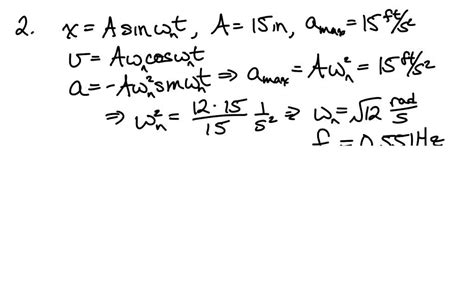 2. x = A sin ωₙt, A = 15in, a_max = 15 ft/s²
v = Aωₙcosωₙt
a = -Aωₙ²sinωₙt ⇒ a_max = Aωₙ² = 15 ft/s²
⇒ ωₙ² = 12·15/15 1/s² ⇒ ωₙ = √12 rad/s
f = 0.551Hz